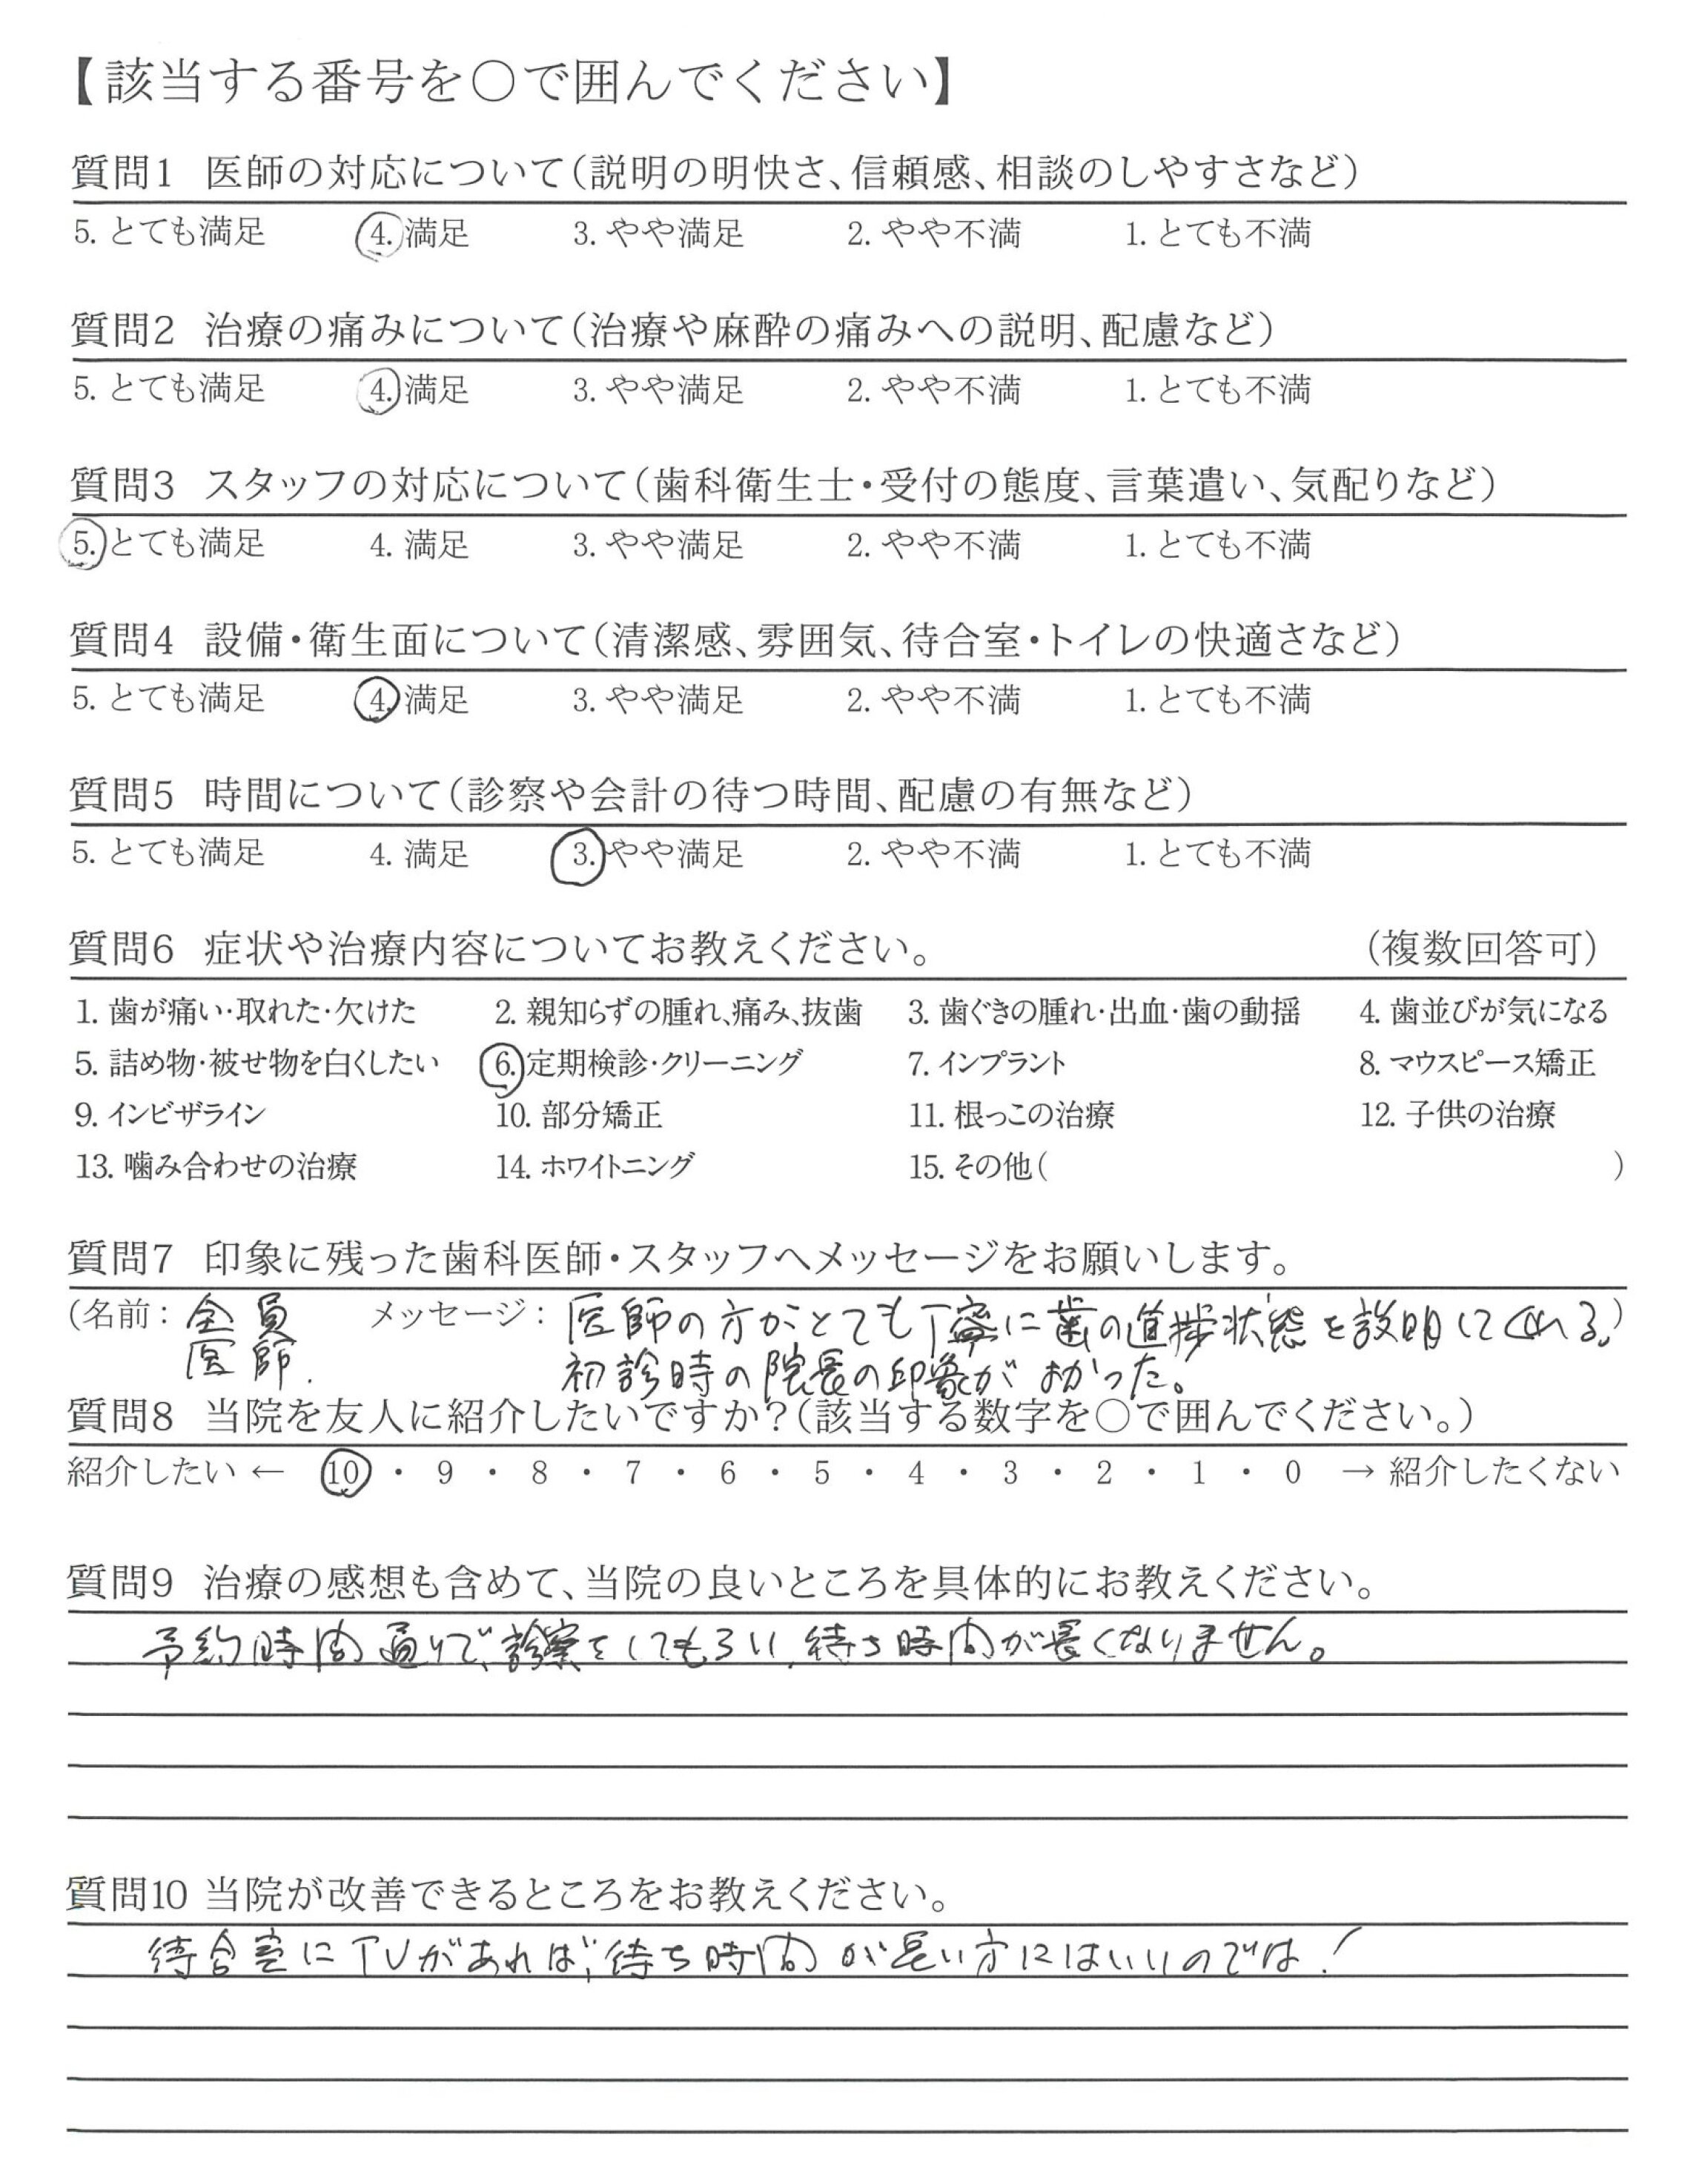 【該当する番号を○で囲んでください】
質問1 医師の対応について(説明の明快さ、信頼感、相談のしやすさなど)
5. とても満足 4. 満足 3. やや満足 2. やや不満 1. とても不満
質問2 治療の痛みについて(治療や麻酔の痛みへの説明、配慮など)
5. とても満足 4. 満足 3. やや満足 2. やや不満 1. とても不満
質問3 スタッフの対応について(歯科衛生士・受付の態度、言葉遣い、気配りなど)
5. とても満足 4. 満足 3. やや満足 2. やや不満 1. とても不満
質問4 設備・衛生面について(清潔感、雰囲気、待合室・トイレの快適さなど)
5. とても満足 4. 満足 3. やや満足 2. やや不満 1. とても不満
質問5 時間について(診察や会計の待つ時間、配慮の有無など)
5. とても満足 4. 満足 3. やや満足 2. やや不満 1. とても不満
質問6 症状や治療内容についてお教えください。 (複数回答可)
1. 歯が痛い・取れた・欠けた 2. 親知らずの腫れ、痛み、抜歯 3. 歯ぐきの腫れ・出血・歯の動揺 4. 歯並びが気になる
5. 詰め物・被せ物を白くしたい 6. 定期検診・クリーニング 7. インプラント 8. マウスピース矯正
9. インビザライン 10. 部分矯正 11. 根っこの治療 12. 子供の治療
13. 噛み合わせの治療 14. ホワイトニング 15. その他( )
質問7 印象に残った歯科医師・スタッフへメッセージをお願いします。
(名前: 全員 メッセージ: 医師の方がとても丁寧に歯の進捗状態を説明してくれる。)
医師. 初診時の院長の印象がよかった。
質問8 当院を友人に紹介したいですか?(該当する数字を○で囲んでください。)
紹介したい ← 10 ・ 9 ・ 8 ・ 7 ・ 6 ・ 5 ・ 4 ・ 3 ・ 2 ・ 1 ・ 0 → 紹介したくない
質問9 治療の感想も含めて、当院の良いところを具体的にお教えください。
予約時間通りで、診察をしてもらい、待ち時間が長くなりません。
質問10 当院が改善できるところをお教えください。
待合室にTVがあれば、待ち時間が長い方にはいいのでは!